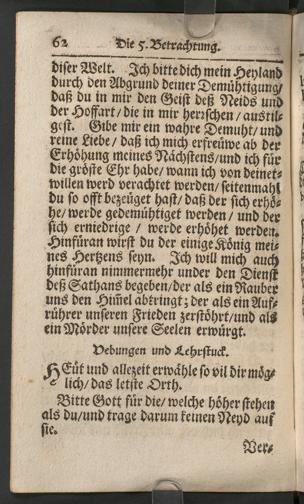 62 Die 5. Betrachtung.
diser Welt. Ich bitte dich mein Heyland
durch den Abgrund deiner Demühtigung/
daß du in mir den Geist deß Neids und
der Hoffart/ die in mir herschen/ austil-
gest. Gibe mir ein wahre Demuht/ und
reine Liebe/ daß ich mich erfreüwe ab der
Erhöhung meines Nächstens/ und ich für
die gröste Ehr habe/ wann ich von deinet-
willen werd verachtet werden/ seitenmahl
du so offt bezeüget hast/ daß der sich erhö-
he/ werde gedemühtiget werden / und der
sich erniedrige / werde erhöhet werden.
Hinfüran wirst du der einige König mei-
nes Hertzens seyn. Ich will mich auch
hinfüran nimmermehr under den Dienst
deß Sathans begeben/ der als ein Rauber
uns den Him̄el abtringt; der als ein Auf-
rührer unseren Frieden zerstöhrt/ und als
ein Mörder unsere Seelen erwürgt.
Uebungen und Lehrstuck.
HEüt und allezeit erwähle so vil dir mög-
lich/ das letste Orth.
Bitte Gott für die/ welche höher stehen
als du/ und trage darum keinen Neyd auf
sie.
Ver-